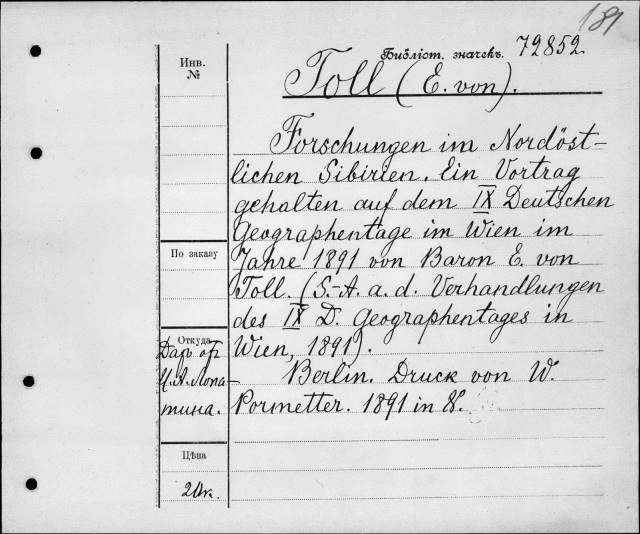 181
Библіот. значекъ. 72852.
Инв.
№
Toll (E. von).
Forschungen im Nordöst-
lichen Sibirien. Ein Vortrag
gehalten auf dem IX Deutschen
Geographentage im Wien im
По заказу
Jahre 1891 von Baron E. von
Toll. (S.-A. a. d. Verhandlungen
des IX D. Geographentages in
Wien, 1891).
Откуда
Даръ от
И.А. Лопа-
тина.
Berlin. Druck von W.
Pormetter. 1891 in 8.
Цѣна
20к.